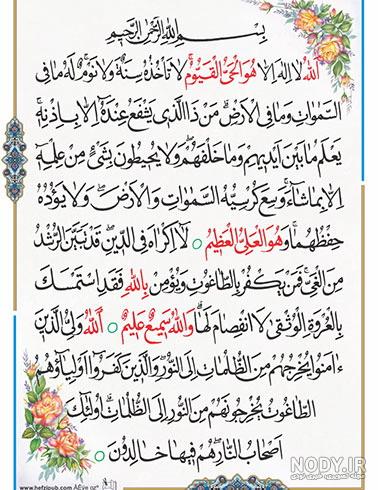 بِسْمِ اللهِ الرَّحْمٰنِ الرَّحيمِ
اَللهُ لا اِلٰهَ اِلّا هُوَ الْحَيُّ الْقَيُّومُ لا تَأْخُذُهُ سِنَةٌ وَلا نَوْمٌ لَهُ ما فِى
السَّمٰوَاتِ وَما فِى الْاَرْضِ مَنْ ذَا الَّذى يَشْفَعُ عِنْدَهُ اِلّا بِاِذْنِهِ
يَعْلَمُ ما بَيْنَ اَيْديهِمْ وَما خَلْفَهُمْ وَلا يُحيطُونَ بِشَىْءٍ مِنْ عِلْمِهِ
اِلّا بِما شاءَ وَسِعَ كُرْسِيُّهُ السَّمٰوَاتِ وَالْاَرْضَ وَلا يَؤُدُهُ
حِفْظُهُما وَهُوَ الْعَلِىُّ الْعَظيمُ لا اِكْراهَ فِى الدّينِ قَدْ تَبَيَّنَ الرُّشْدُ
مِنَ الْغَىِّ فَمَنْ يَكْفُرْ بِالطّاغُوتِ وَيُؤْمِنْ بِاللهِ فَقَدِ اسْتَمْسَكَ
بِالْعُرْوَةِ الْوُثْقىٰ لَا انْفِصامَ لَها وَاللهُ سَميعٌ عَليمٌ اَللهُ وَلِىُّ الَّذينَ
ءٰامَنُوا يُخْرِجُهُمْ مِنَ الظُّلُماتِ اِلَى النُّورِ وَالَّذينَ كَفَرُوا اَوْلِياؤُهُمُ
الطّاغُوتُ يُخْرِجُونَهُمْ مِنَ النُّورِ اِلَى الظُّلُماتِ اُولٰئِكَ
اَصْحابُ النّارِ هُمْ فيها خالِدُونَ
www.hefzipub.com
NODY.IR